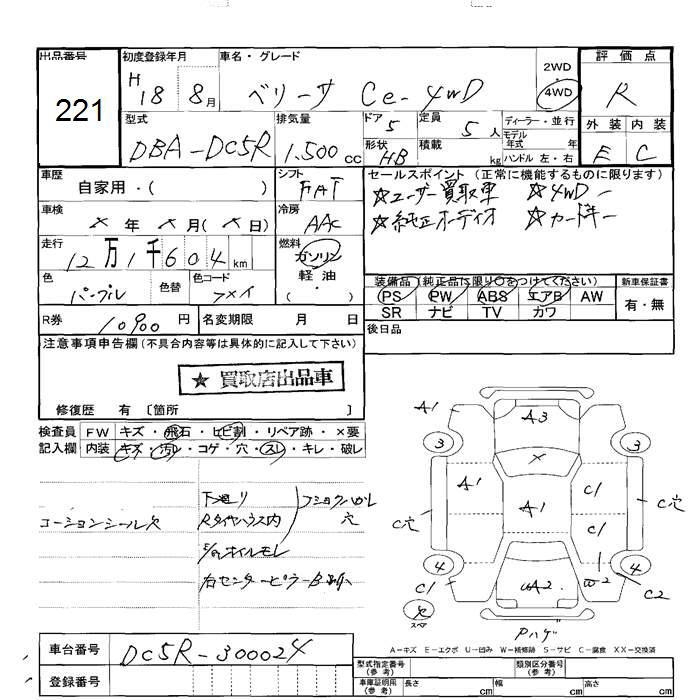 出品番号 221
初度登録年月 H18 8月
車名・グレード ベリーサ Ce-4WD
2WD
4WD
評価点 R
外装 内装
E C
型式 DBA-DC5R
排気量 1.500 cc
ドア 5
定員 5人
形状 HB
積載 kg
ディーラー・並行
モデル年式 年
ハンドル 左・右
車歴 自家用・( )
シフト FAT
セールスポイント (正常に機能するものに限ります)
☆ユーザー買取車 ☆4WD
☆純正オーディオ ☆カードキー
車検 × 年 × 月(× 日)
冷房 AAC
走行 12万1千604 km
燃料 ガソリン・軽油・( )
色 パープル
色替
色コード
装備品 (純正品に限り○をつけてください)
PS PW ABS エアB AW
SR ナビ TV カワ
新車保証書
有・無
R券 10900 円
名変期限 月 日
後日品
注意事項申告欄 (不具合内容等は具体的に記入して下さい)
★ 買取店出品車
修復歴 有 〔箇所 〕
検査員 FW キズ・飛石・ヒビ割・リペア跡・×要
記入欄 内装 キズ・汚レ・コゲ・穴・スレ・キレ・破レ
コーションシール欠
下廻り
Rタイヤハウス内
フショク大
穴
E/gオイルモレ
右センターピラー
A1 A3
3 3
A1 × C1
A1 C穴
C穴 C1
4 W2 4
C1 UA2 C2
欠
スペア
Pハゲ
A-キズ E-エクボ U-凹み W-補修跡 S-サビ C-腐食 XX-交換済
車台番号 DC5R-300024
登録番号
型式指定番号(参考)
類別区分番号(参考)
車庫証明用(参考) 長さ cm 幅 cm 高さ cm